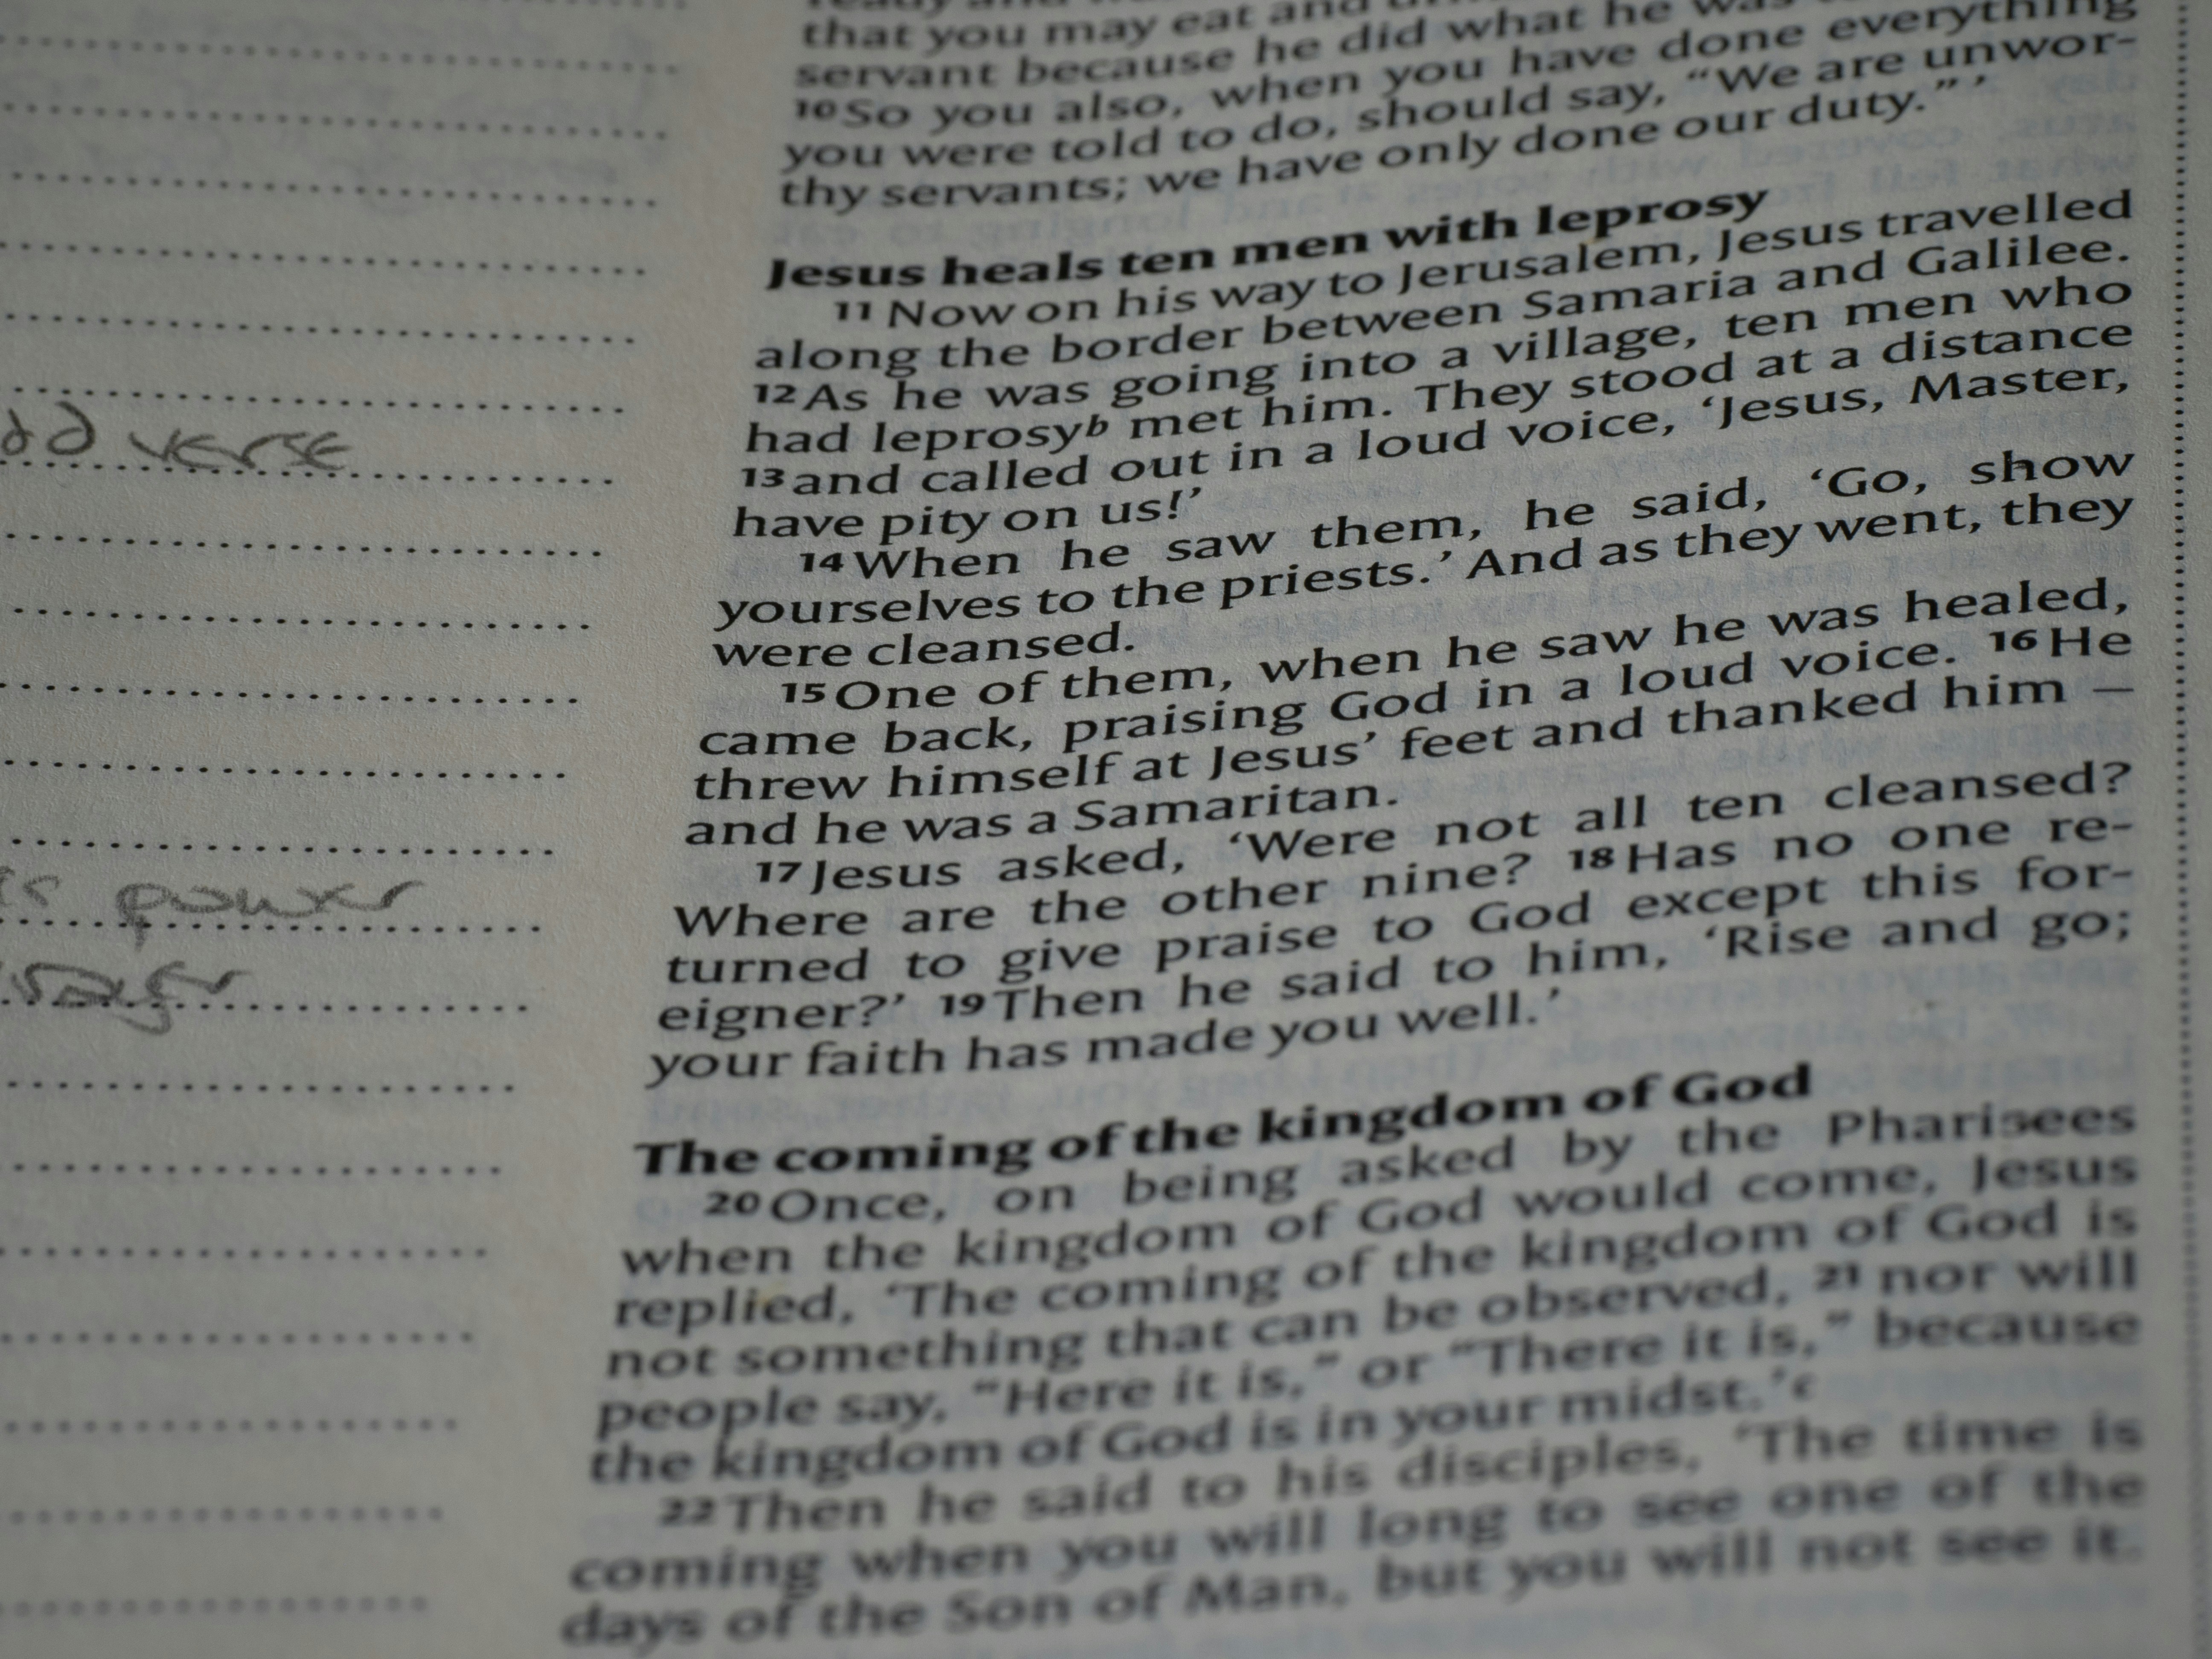 that you may eat and
servant because he did what he was
10 So you also, when you have done everything
you were told to do, should say, “We are unwor-
thy servants; we have only done our duty.” ’
Jesus heals ten men with leprosy
11 Now on his way to Jerusalem, Jesus travelled
along the border between Samaria and Galilee.
12 As he was going into a village, ten men who
had leprosyb met him. They stood at a distance
13 and called out in a loud voice, ‘Jesus, Master,
have pity on us!’
14 When he saw them, he said, ‘Go, show
yourselves to the priests.’ And as they went, they
were cleansed.
15 One of them, when he saw he was healed,
came back, praising God in a loud voice. 16 He
threw himself at Jesus’ feet and thanked him –
and he was a Samaritan.
17 Jesus asked, ‘Were not all ten cleansed?
Where are the other nine? 18 Has no one re-
turned to give praise to God except this for-
eigner?’ 19 Then he said to him, ‘Rise and go;
your faith has made you well.’
The coming of the kingdom of God
20 Once, on being asked by the Pharisees
when the kingdom of God would come, Jesus
replied, ‘The coming of the kingdom of God is
not something that can be observed, 21 nor will
people say, “Here it is,” or “There it is,” because
the kingdom of God is in your midst.’c
22 Then he said to his disciples, ‘The time is
coming when you will long to see one of the
days of the Son of Man, but you will not see it.
verse
power